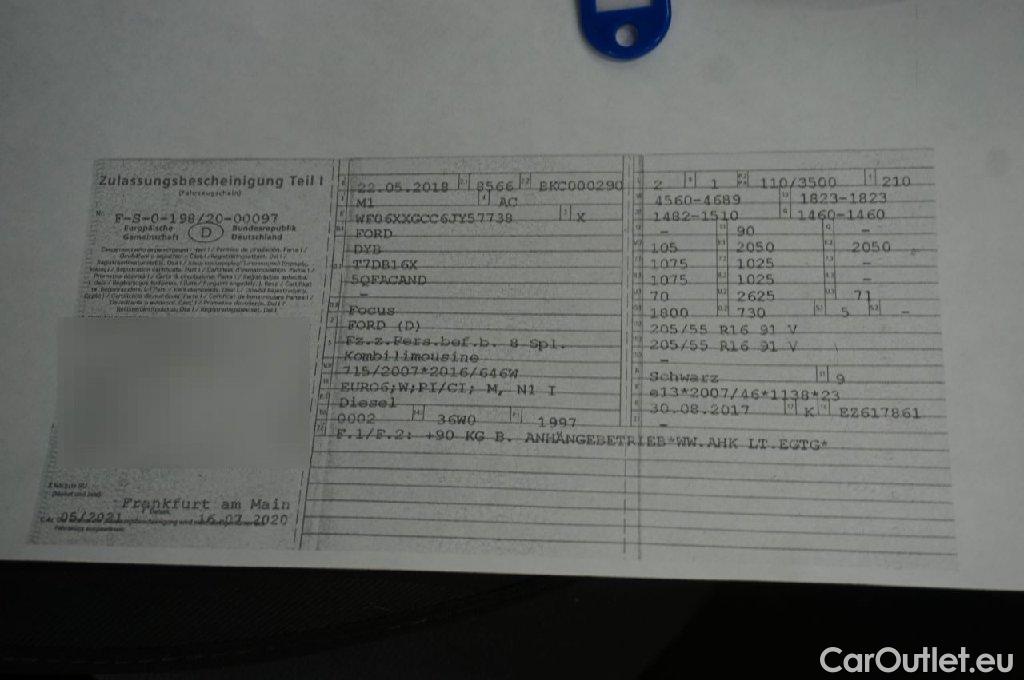 Zulassungsbescheinigung Teil I
(Fahrzeugschein)
Nr. F-S-0-198/20-00097
Europäische Gemeinschaft D Bundesrepublik Deutschland
Frankfurt am Main
05/2021 16.07.2020
22.05.2018 8566 BKC000290
M1 AC
WF06XXGCC6JY57738 X
FORD
DYB
T7DB16X
5QFACAND
-
Focus
FORD (D)
Fz.z.Pers.bef.b. 8 Spl.
Kombilimousine
715/2007*2016/646W
EURO6;W;PI/CI; M, N1 I
Diesel
0002 36W0 1997
F.1/F.2: +90 KG B. ANHÄNGEBETRIEB*WW.AHK LT.EGTG*
2 1 110/3500 210
4560-4689 1823-1823
1482-1510 1460-1460
- 90 -
105 2050 2050
1075 1025 -
1075 1025 -
70 2625 71
1800 730 5 -
205/55 R16 91 V
205/55 R16 91 V
-
Schwarz 9
e13*2007/46*1138*23
30.08.2017 K EZ617861
-
CarOutlet.eu